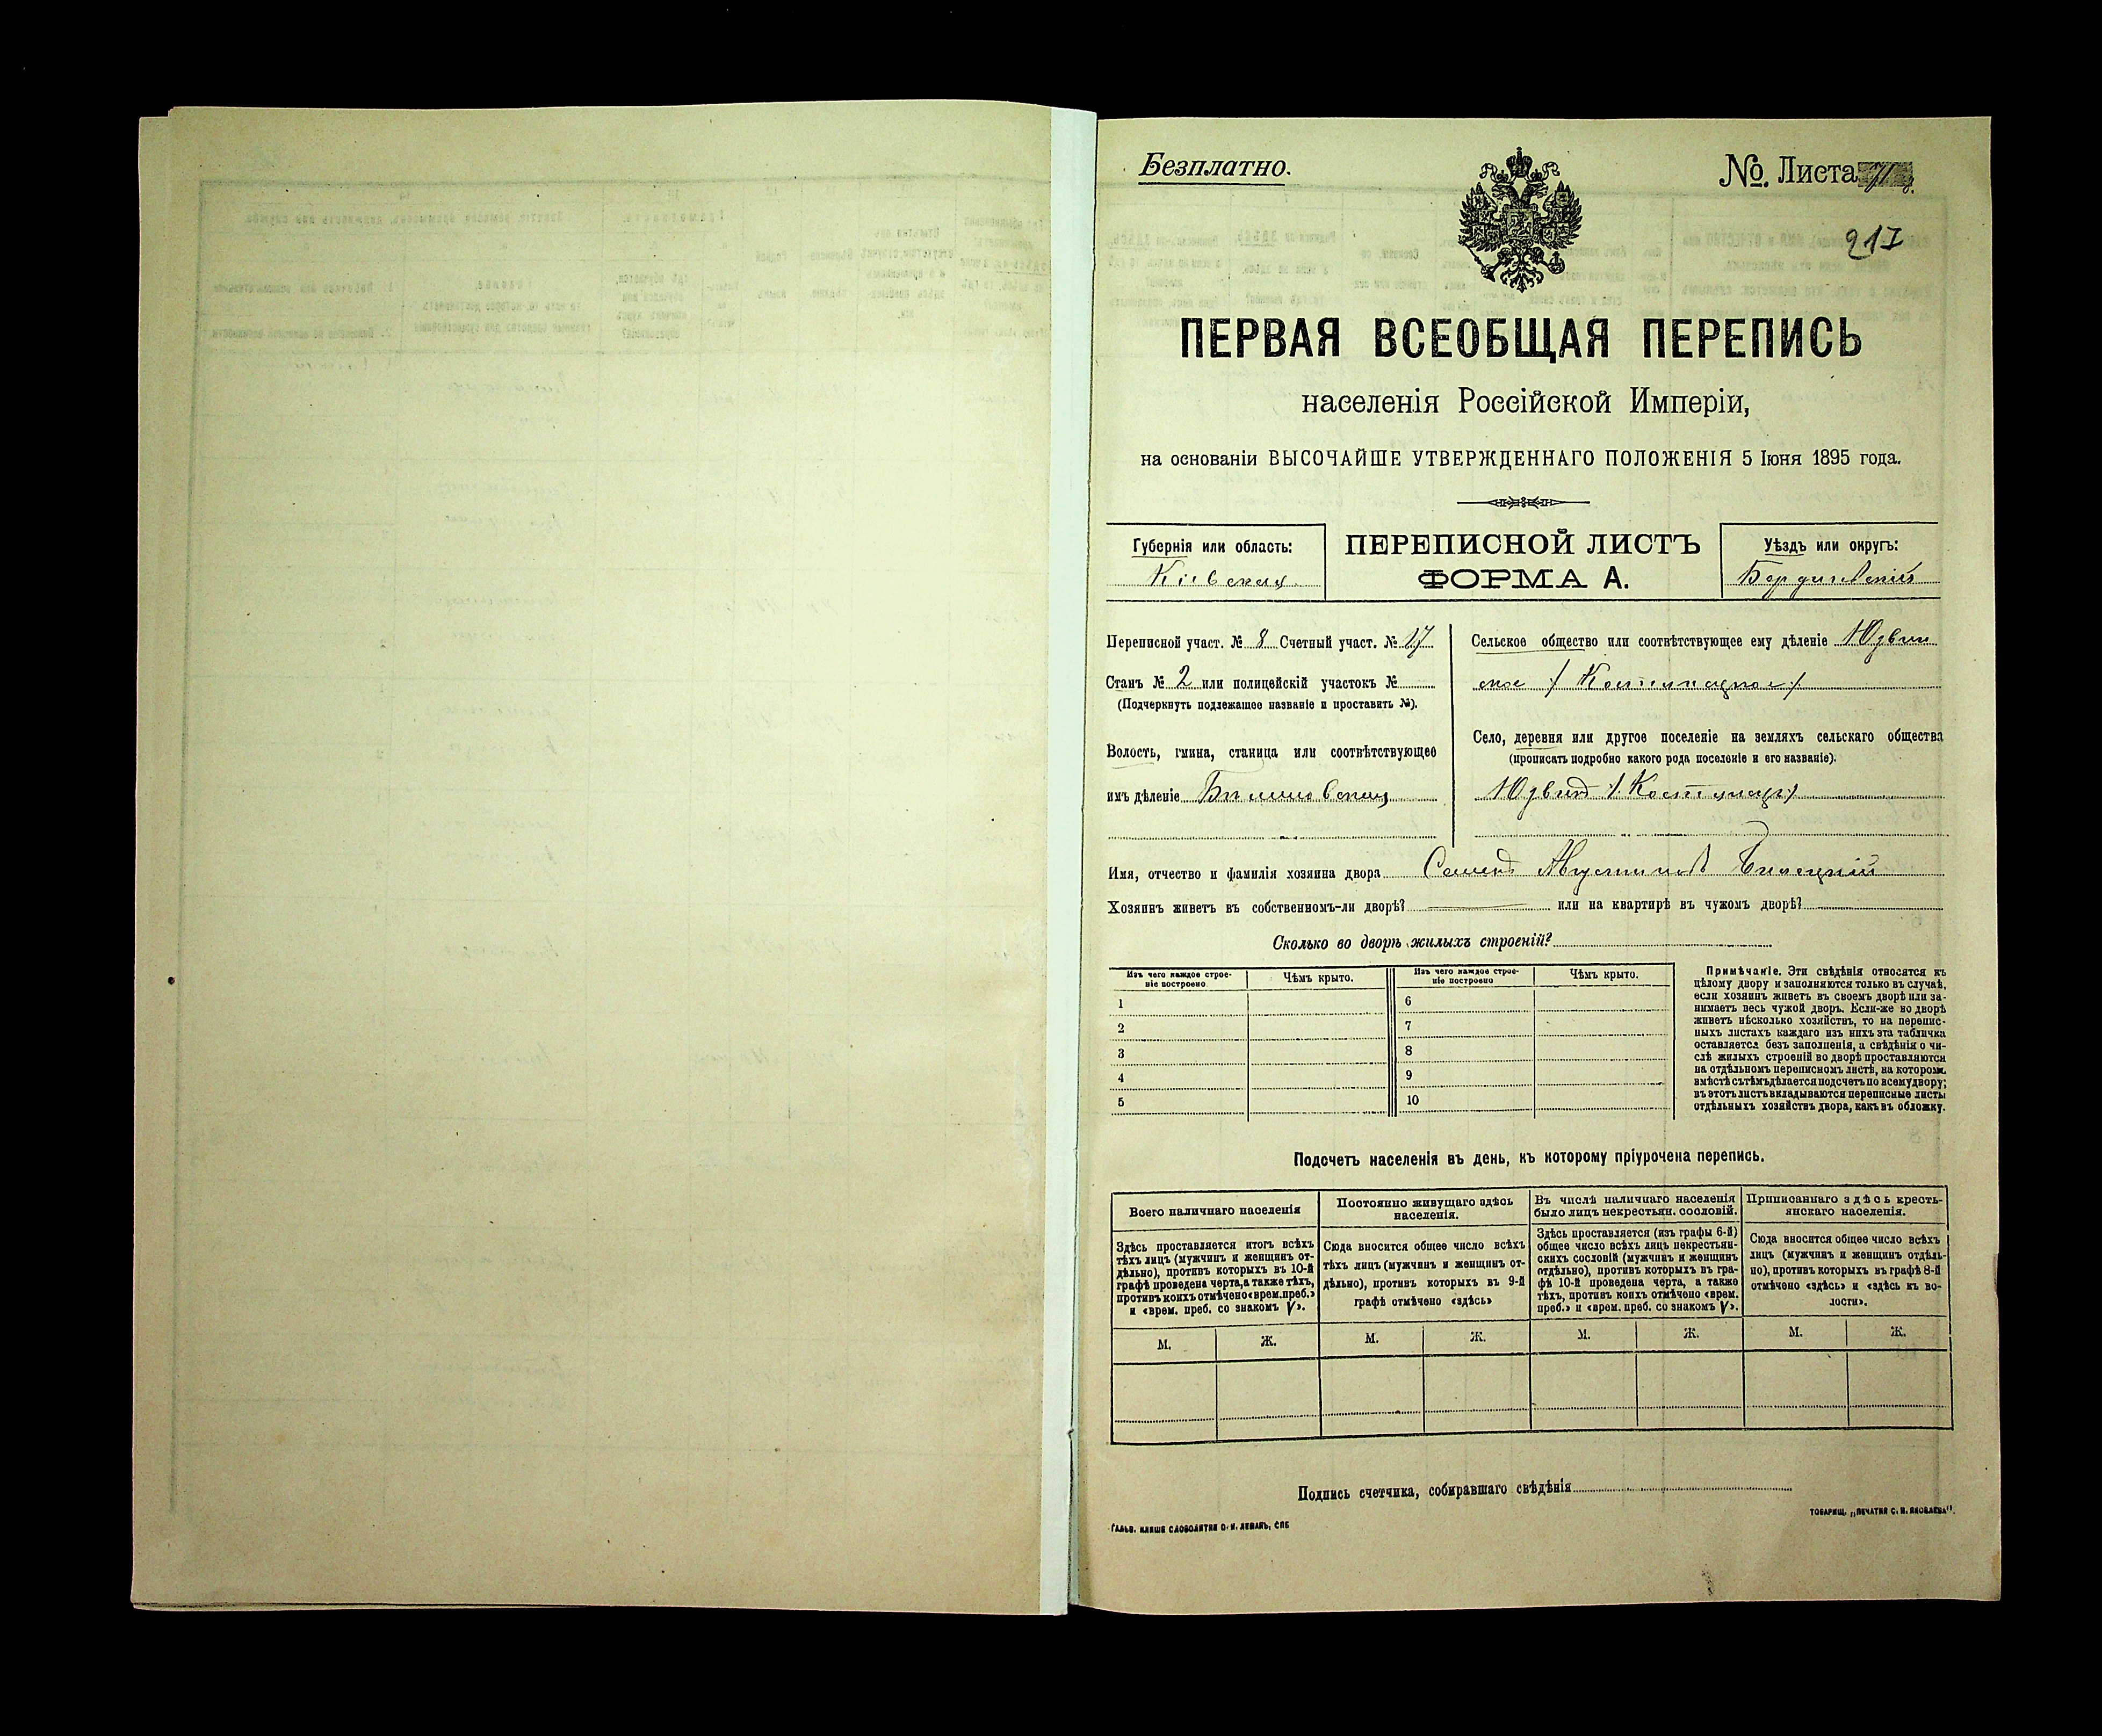 Безплатно.
№. Листа
217
ПЕРВАЯ ВСЕОБЩАЯ ПЕРЕПИСЬ
населенія Россійской Имперіи,
на основаніи ВЫСОЧАЙШЕ УТВЕРЖДЕННАГО ПОЛОЖЕНІЯ 5 Іюня 1895 года.
Губернія или область:
Кіевская
ПЕРЕПИСНОЙ ЛИСТЪ
ФОРМА А.
Уѣздъ или округъ:
Бердичевскій
Переписной участ. № 8 Счетный участ. № 17
Станъ № 2 или полицейскій участокъ №
(Подчеркнуть подлежащее названіе и проставить №).
Волость, гмина, станица или соотвѣтствующее
имъ дѣленіе
Сельское общество или соотвѣтствующее ему дѣленіе
Село, деревня или другое поселеніе на земляхъ сельскаго общества
(прописать подробно какого рода поселеніе и его названіе).
Имя, отчество и фамилія хозяина двора Семенъ Августиновъ Билецкій
Хозяинъ живетъ въ собственномъ-ли дворѣ? или на квартирѣ въ чужомъ дворѣ?
Сколько во дворѣ жилыхъ строеній?
Изъ чего каждое строе-
ніе построено
Чѣмъ крыто.
1
2
3
4
5
Изъ чего каждое строе-
ніе построено
Чѣмъ крыто.
6
7
8
9
10
Примѣчаніе. Эти свѣдѣнія относятся къ
цѣлому двору и заполняются только въ случаѣ,
если хозяинъ живетъ въ своемъ дворѣ или за-
нимаетъ весь чужой дворъ. Если-же во дворѣ
живетъ нѣсколько хозяйствъ, то на перепис-
ныхъ листахъ каждаго изъ нихъ эта табличка
оставляется безъ заполненія, а свѣдѣнія о чи-
слѣ жилыхъ строеній во дворѣ проставляются
на отдѣльномъ переписномъ листѣ, на которомъ
вмѣстѣ съ тѣмъ дѣлается подсчетъ по всему двору;
въ этотъ листъ вкладываются переписные листы
отдѣльныхъ хозяйствъ двора, какъ въ обложку.
Подсчетъ населенія въ день, къ которому пріурочена перепись.
Всего наличнаго населенія
Здѣсь проставляется итогъ всѣхъ
тѣхъ лицъ (мужчинъ и женщинъ от-
дѣльно), противъ которыхъ въ 10-й
графѣ проведена черта, а также тѣхъ,
противъ коихъ отмѣчено «врем. преб.»
и «врем. преб. со знакомъ V».
М. Ж.
Постоянно живущаго здѣсь
населенія.
Сюда вносится общее число всѣхъ
тѣхъ лицъ (мужчинъ и женщинъ от-
дѣльно), противъ которыхъ въ 9-й
графѣ отмѣчено «здѣсь»
М. Ж.
Въ числѣ наличнаго населенія
было лицъ некрестьян. сословій.
Здѣсь проставляется (изъ графы 6-й)
общее число всѣхъ лицъ некрестьян-
скихъ сословій (мужчинъ и женщинъ
отдѣльно), противъ которыхъ въ гра-
фѣ 10-й проведена черта, а также
тѣхъ, противъ коихъ отмѣчено «врем.
преб.» и «врем. преб. со знакомъ V».
М. Ж.
Приписаннаго здѣсь кресть-
янскаго населенія.
Сюда вносится общее число всѣхъ
лицъ (мужчинъ и женщинъ отдѣль-
но), противъ которыхъ въ графѣ 8-й
отмѣчено «здѣсь» и «здѣсь къ во-
лости».
М. Ж.
Подпись счетчика, собиравшаго свѣдѣнія
Гальв. клише словолитни О. И. Леманъ, СПБ
Товарищ. „Печатня С. П. Яковлева".